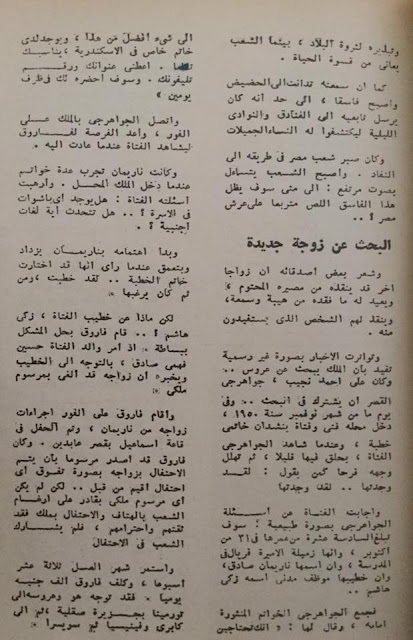 وتبذيره لثروة البلاد ، بينما الشعب
يعانى من قسوة الحياة .
كما ان سمعته تدانت الى الحضيض
وأصبح فاسقا ، الى حد أنه كان
يرسل تابعيه الى الفنادق والنوادى
الليلية ليكتشفوا له النساء الجميلات
وكان صبر شعب مصر فى طريقه الى
النفاد . وأصبح الشعب يتساءل
بصوت مرتفع : الى متى سوف يظل
هذا الفاسق اللص متربعا على عرش
مصر ؟ ..
البحث عن زوجة جديدة
وشعر بعض أصدقائه ان زواجا
آخر قد ينقذه من مصيره المحتوم ،
ويعيد له ما فقده من هيبة وسمعة،
وينقذ لهم الشخص الذى يستفيدون
منه .
وتواترت الاخبار بصورة غير رسمية
تفيد بأن الملك يبحث عن عروس ..
وكان على احمد نجيب ، جواهرجى
القصر ان يشترك فى البحث .. وفى
يوم ما من شهر نوفمبر سنة ١٩٥٠ ،
دخل محله فتى وفتاة ينشدان خاتمى
خطبة ، وعندما شاهد الجواهرجى
الفتاة ، يحلق فيها قليلا ، ثم تهلل
وجهه فرحا كمن يقول : لقد
وجدتها .. لقد وجدتها
واجابت الفتاة عن أسئلة
الجواهرجى بصورة طبيعية ؛ سوف
تبلغ السادسة عشرة من عمرها فى ٣١ من
أكتوبر ، وانها زميلة الاميرة فريال فى
المدرسة ، وان اسمها ناريمان صادق،
وان خطيبها موظف مدنى اسمه زكى
هاشم ..
فجمع الجواهرجى الخواتم المنثورة
امامه ، وقال لها : « انك تحتاجين
الى شىء أفضل من هذا ، ويوجد لدى
خاتم خاص فى الاسكندرية ، يناسبك
تماما . اعطنى عنوانك ورقم
تليفونك . وسوف احضره لك فى ظرف
يومين »
واتصل الجواهرجى بالملك على
الفور ، وأعد الفرصة لفاروق
ليشاهد الفتاة عندما عادت اليه »
وكانت ناريمان تجرب عدة خواتم
عندما دخل الملك المحل . وأرهبت
أسئلته الفتاة : هل يوجد أى باشوات
فى الأسرة ؟ .. هل تتحدث أية لغات
أجنبية ؟ .
وبدأ اهتمامه بناريمان يزداد
ويتعمق عندما رأى أنها قد اختارت
خاتم الخطبة .. لقد خطبت ، ومن
ثم كان يرغبها »
لكن ماذا عن خطيب الفتاة ، زكى
هاشم ؟ .. قام فاروق بحل المشكل
ببساطة » اذ أمر والد الفتاة حسين
فهمى صادق ، بالتوجه الى الخطيب
ويخبره أن زواجه قد ألغى بمرسوم
ملكى »
وأقام فاروق على الفور اجراءات
زواجه من ناريمان ، وتم الحفل فى
قاعة اسماعيل بقصر عابدين . وكان
فاروق قد أصدر مرسوما بأن يتم
الاحتفال بزواجه بصورة تفوق أى
احتفال أقيم من قبل .. لكن لم يكن
أى مرسوم ملكى بقادر على ارغام
الشعب بالهتاف والاحتفال بملك فقد
ثقتهم واحترامهم ، فلم يشارك
الشعب فى الاحتفال
واستمر شهر العسل ثلاثة عشر
أسبوعا ، وكلف فاروق الف جنيه
يوميا » فقد توجه هو وعروسه الى
تورمينا بجزيرة صقلية ، ثم الى
كابرى وفينيسيا ثم سويسرا »